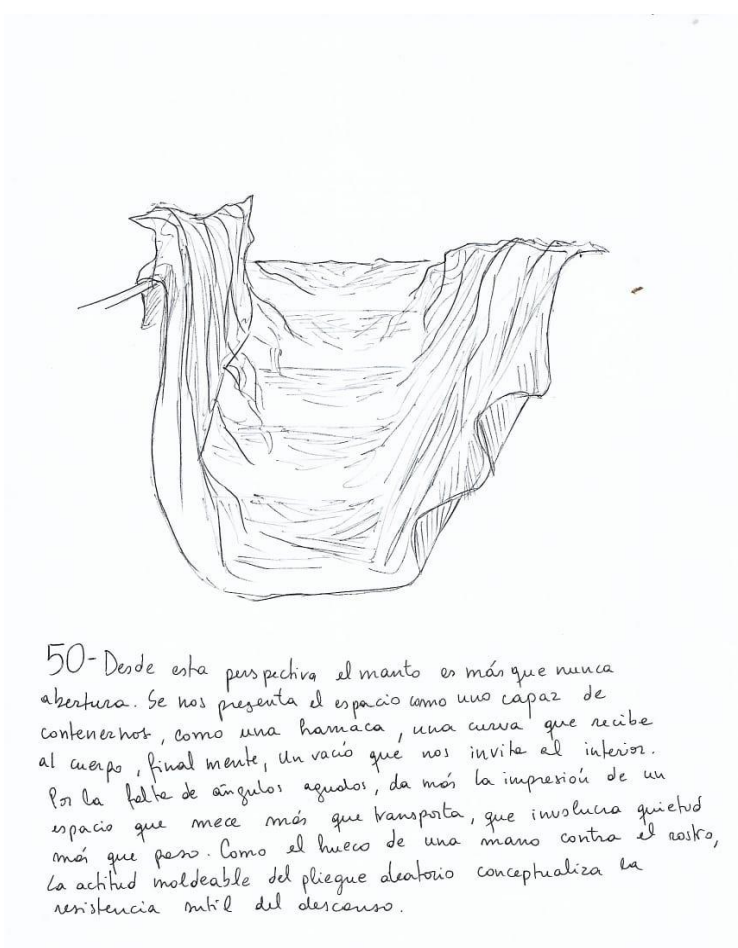 50- Desde esta perspectiva el manto es más que nunca
abertura. Se nos presenta el espacio como uno capaz de
contenernos, como una hamaca, una curva que recibe
al cuerpo, finalmente, un vacío que nos invita al interior.
Por la falta de ángulos agudos, da más la impresión de un
espacio que mece más que transporta, que involucra quietud
más que paso. Como el hueco de una mano contra el rostro,
la actitud moldeable del pliegue aleatorio conceptualiza la
resistencia sutil del descanso.